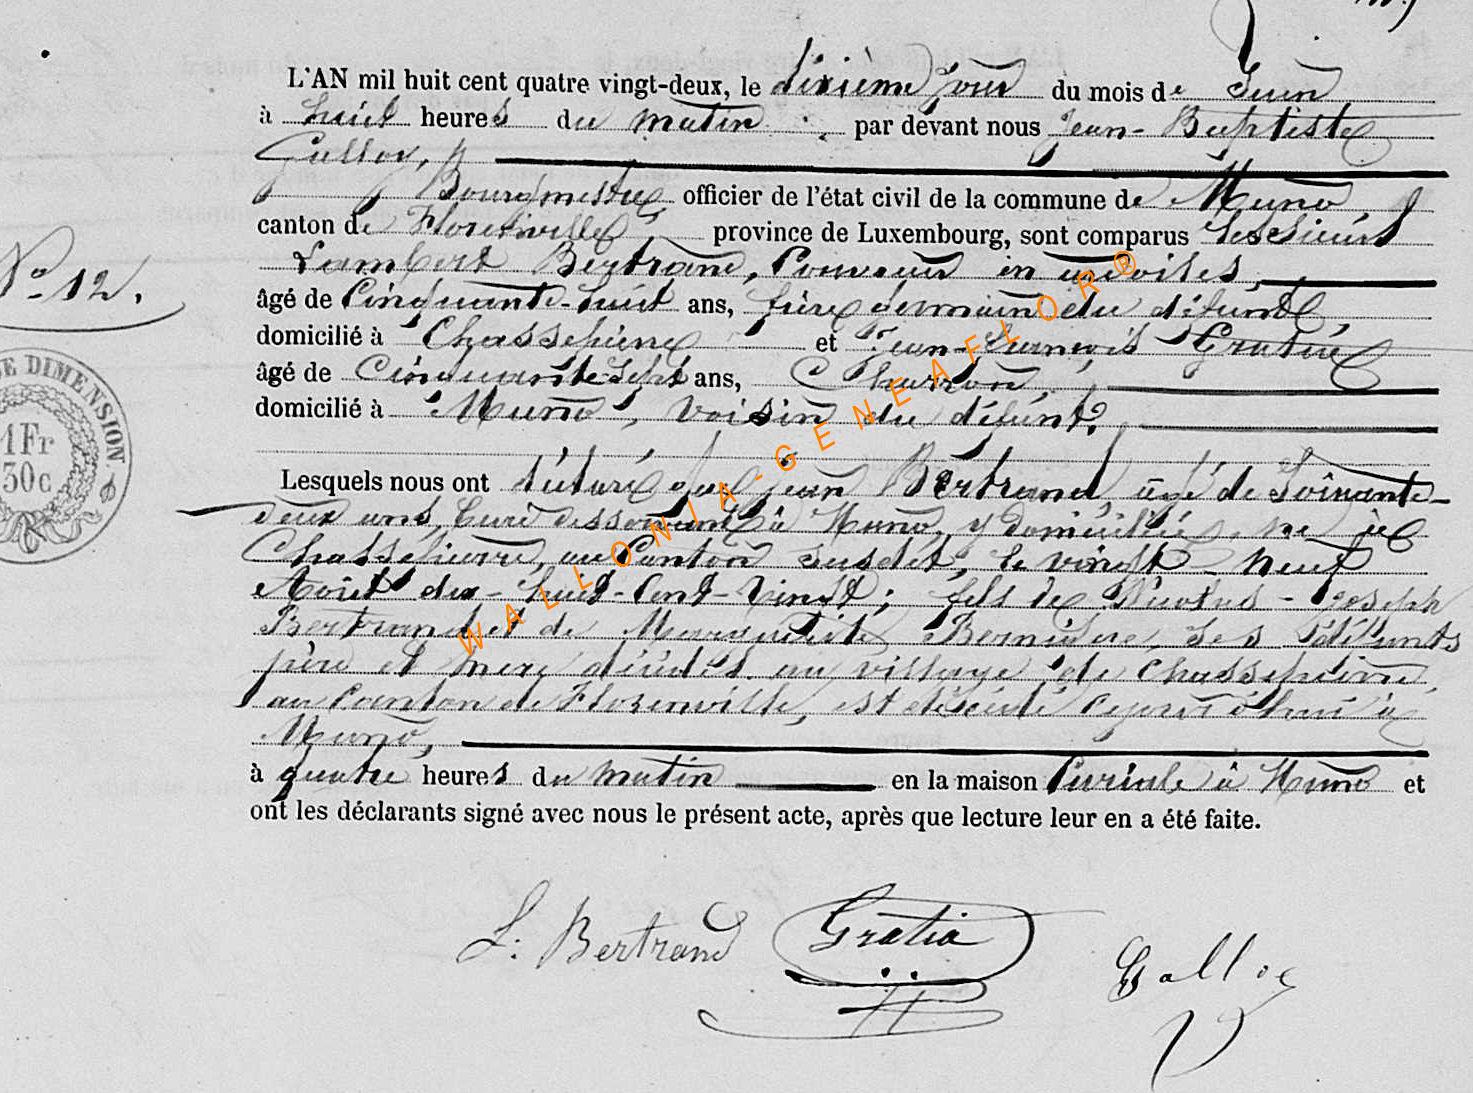 L'AN mil huit cent quatre vingt-deux, le dixième jour du mois de Juin
à huit heures du matin par devant nous Jean-Baptiste
Bourgmestre officier de l'état civil de la commune de Muno,
canton de Florenville province de Luxembourg, sont comparus les sieurs
Lambert Bertrand,
âgé de Cinquante-huit ans, frère germain du défunt
domicilié à Chassepierre et Jean-François Gratia
âgé de Cinquante-Sept ans, Charron
domicilié à Muno, voisin du défunt,
Lesquels nous ont déclaré que Jean Bertrand, âgé de Soixante-
deux ans, Curé desservant à Muno, y domicilié, né à
Chassepierre, au Canton susdit, le vingt-neuf
Août dix-huit-Cent-Vingt; fils de Nicolas-Joseph
Bertrand et de Marguerite ses défunts
père et mère décédés au village de Chassepierre,
au Canton de Florenville, est décédé Cejourd'hui à
Muno,
à quatre heures du matin en la maison Curiale à Muno et
ont les déclarants signé avec nous le présent acte, après que lecture leur en a été faite.
No 12.
DE DIMENSION.
1Fr
30c
WALLONIA-GENEAFLOR®
L. Bertrand Gratia